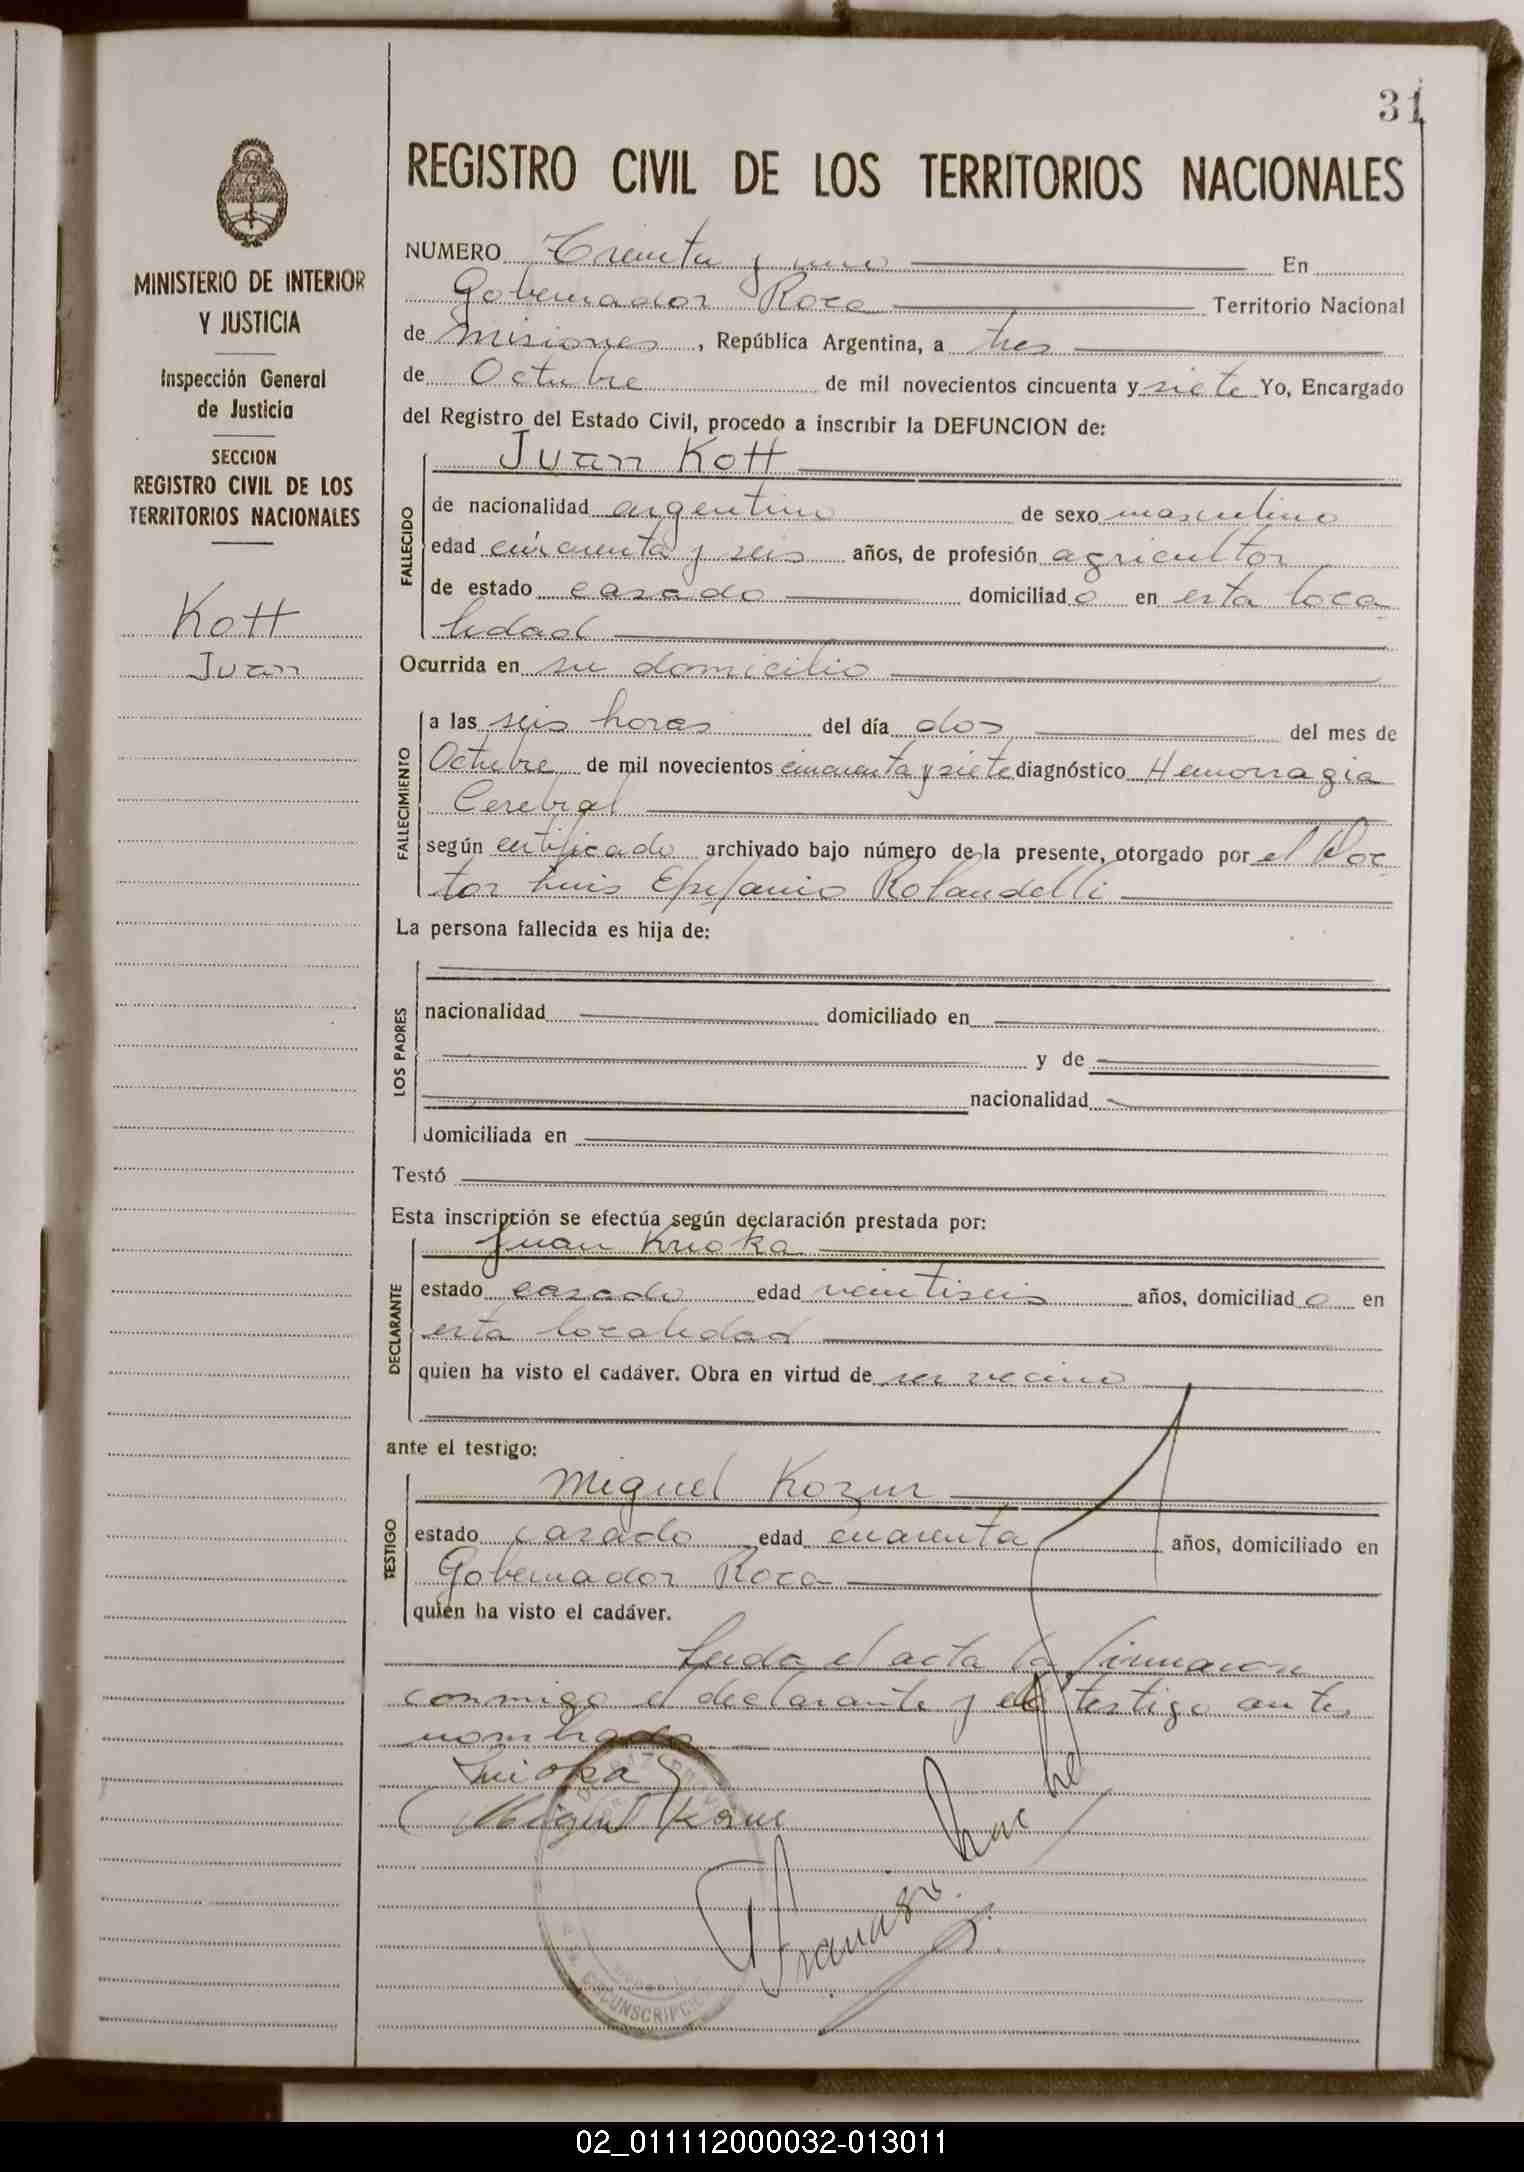 31
MINISTERIO DE INTERIOR
Y JUSTICIA
Inspección General
de Justicia
SECCION
REGISTRO CIVIL DE LOS
TERRITORIOS NACIONALES
Kott
Juan
REGISTRO CIVIL DE LOS TERRITORIOS NACIONALES
NUMERO Treinta y uno En
Gobernador Roca Territorio Nacional
de Misiones, República Argentina, a tres
de Octubre de mil novecientos cincuenta y siete Yo, Encargado
del Registro del Estado Civil, procedo a inscribir la DEFUNCION de:
Juan Kott
FALLECIDO
de nacionalidad argentino de sexo masculino
edad cincuenta y seis años, de profesión agricultor
de estado casado domiciliado en esta loca
lidad
Ocurrida en su domicilio
FALLECIMIENTO
a las seis horas del día dos del mes de
Octubre de mil novecientos cincuenta y siete diagnóstico Hemorragia
Cerebral
según certificado archivado bajo número de la presente, otorgado por el Doc-
tor Luis Epifanio Rolandelli
La persona fallecida es hija de:
LOS PADRES
nacionalidad domiciliado en
y de
nacionalidad
domiciliada en
Testó
Esta inscripción se efectúa según declaración prestada por:
DECLARANTE
Juan Krioka
estado casado edad veintiseis años, domiciliado en
esta localidad
quien ha visto el cadáver. Obra en virtud de ser vecino
ante el testigo:
TESTIGO
Miguel Kozur
estado casado edad cuarenta años, domiciliado en
Gobernador Roca
quien ha visto el cadáver.
Leida el acta la firmaron
conmigo el declarante y el testigo antes
nombrado
Miguel Kozur
CIRCUNSCRIPCION
02_011112000032-013011